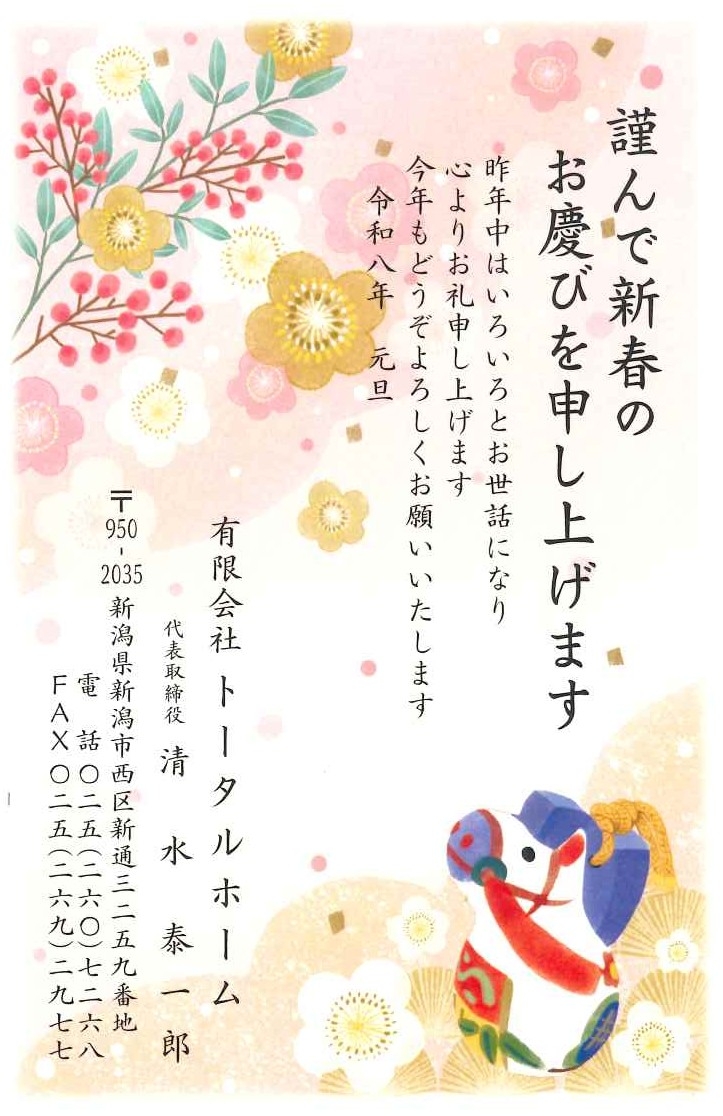 謹んで新春の
お慶びを申し上げます
昨年中はいろいろとお世話になり
心よりお礼申し上げます
今年もどうぞよろしくお願いいたします
令和八年 元旦
有限会社 トータルホーム
代表取締役 清水泰一郎
〒950-2035 新潟県新潟市西区新通三二五九番地
電話〇二五(二六〇)七二六八
FAX〇二五(二六九)二九七七